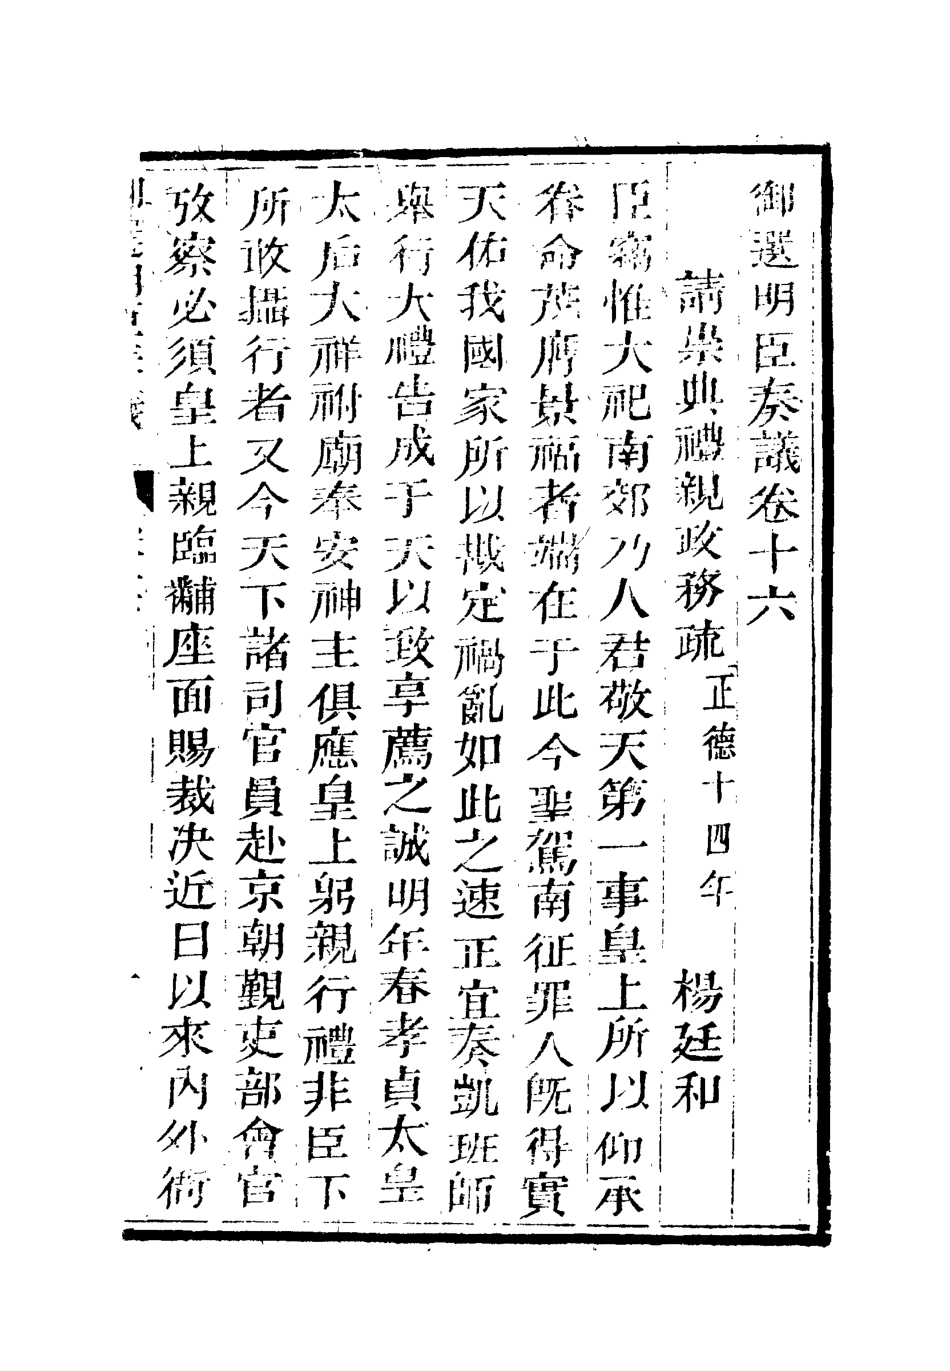 御選明臣奏議卷十六
請崇典禮親政務疏 正德十四年 楊廷和
臣竊惟大祀南郊乃人君敬天第一事皇上所以仰承
眷命茂膺景福者端在于此今聖駕南征罪人旣得實
天佑我國家所以戡定禍亂如此之速正宜奏凱班師
舉行大禮告成于天以致享薦之誠明年春孝貞太皇
太后大祥祔廟奉安神主俱應皇上躬親行禮非臣下
所敢攝行者又今天下諸司官員赴京朝覲吏部會官
攷察必須皇上親臨黼座面賜裁决近日以來內外衙